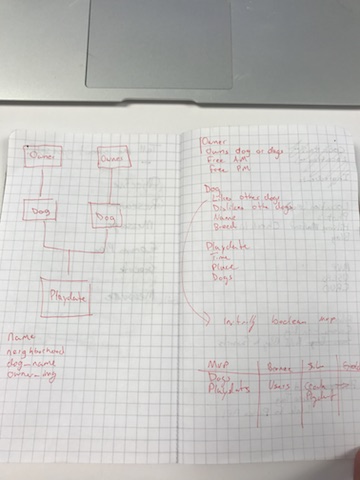 Owner
Owner
Dog
Dog
Playdate
Name
neighborhood
dog_name
owner_dog
Owner
Owns dog or dogs
Free AM
Free PM
Dog
Likes other dogs
Dislikes other dogs
Name
Breed
Playdate
Time
Place
Dogs
Initially boolean
MVP
Dogs
Playdate
Users
Create